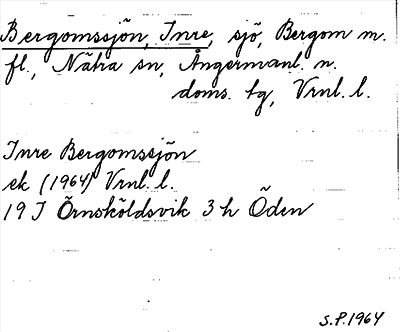 Bergomssjön, Inre, sjö, Bergom m.
fl., Nätra sn, Ångermanl. n.
doms. tg, Vrnl. l.
Inre Bergomssjön
ek (1964) Vrnl. l.
19 I Örnsköldsvik 3 h Öden
S.P. 1964